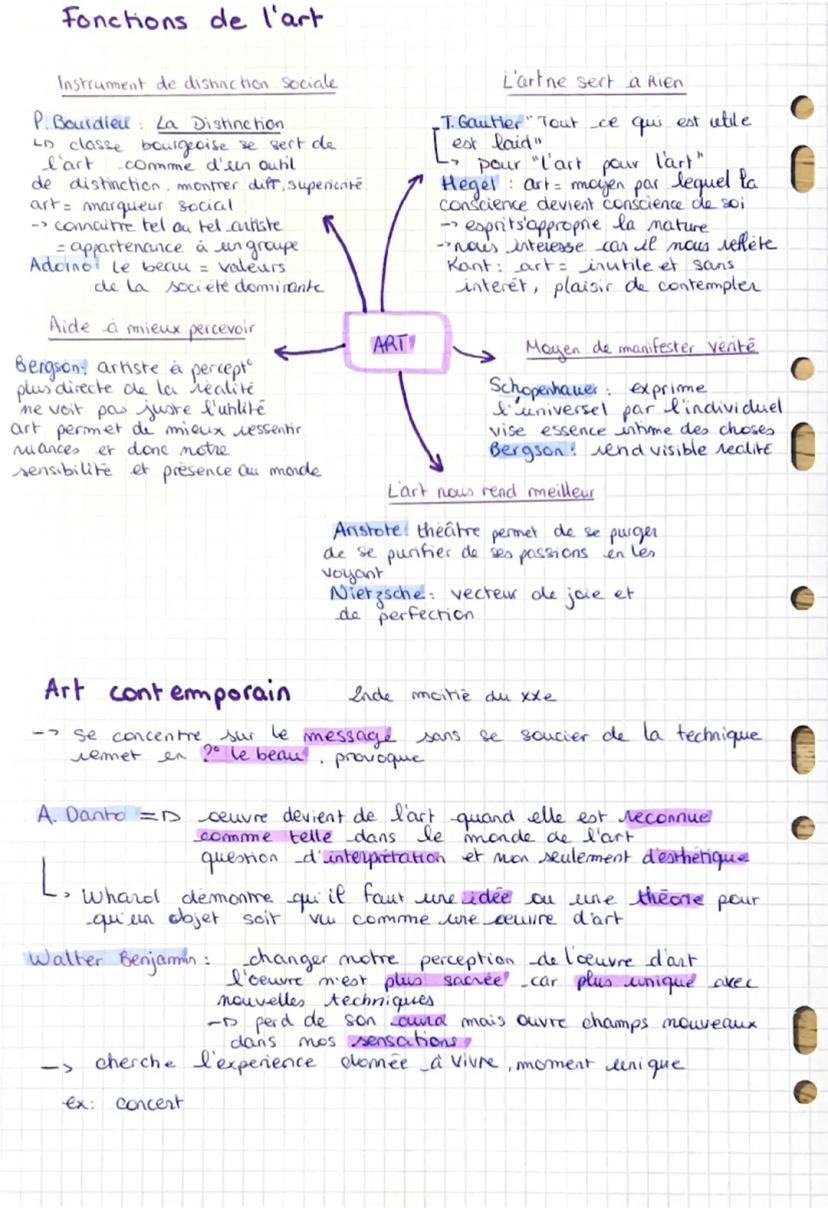 Fonctions de l'art
Instrument de distinction sociale
P. Bourdieu : La Distinction
↳ classe bourgeoise se sert de
l'art comme d'un outil
de distinction, montrer diff, supériorité
art = marqueur social
-> connaitre tel ou tel artiste
= appartenance à un groupe
Adorno : Le beau = valeurs
de la société dominante
L'art ne sert à Rien
T. Gautier "Tout ce qui est utile
est laid"
↳ pour "l'art pour l'art"
Hegel : art = moyen par lequel la
conscience devient conscience de soi
-> esprit s'approprie la nature
-> nous interesse car il nous reflète
Kant : art = inutile et sans
interêt, plaisir de contempler
ART
Aide à mieux percevoir
Bergson : artiste à percept°
plus directe de la réalité
ne voit pas juste l'utilité
art permet de mieux ressentir
nuances et donc notre
sensibilité et présence au monde
Moyen de manifester vérité
Schopenhauer : exprime
l'universel par l'individuel
vise essence intime des choses
Bergson : rend visible réalité
L'art nous rend meilleur
Aristote : théâtre permet de se purger
de se purifier de ses passions en les
voyant
Nietzsche : vecteur de joie et
de perfection
Art contemporain 2nde moitié du xxe
-> se concentre sur le message sans se soucier de la technique
remet en ?° le beau, provoque
A. Danto => oeuvre devient de l'art quand elle est reconnue
comme telle dans le monde de l'art
question d'interprétation et non seulement d'esthétique
↳ Wharol démontre qu'il faut une idée ou une théorie pour
qu'un objet soit vu comme une oeuvre d'art
Walter Benjamin : changer notre perception de l'oeuvre d'art
l'oeuvre n'est plus sacrée car plus unique avec
nouvelles techniques
-> perd de son aura mais ouvre champs nouveaux
dans nos sensations
-> cherche l'experience donnée à vivre, moment unique
ex : concert